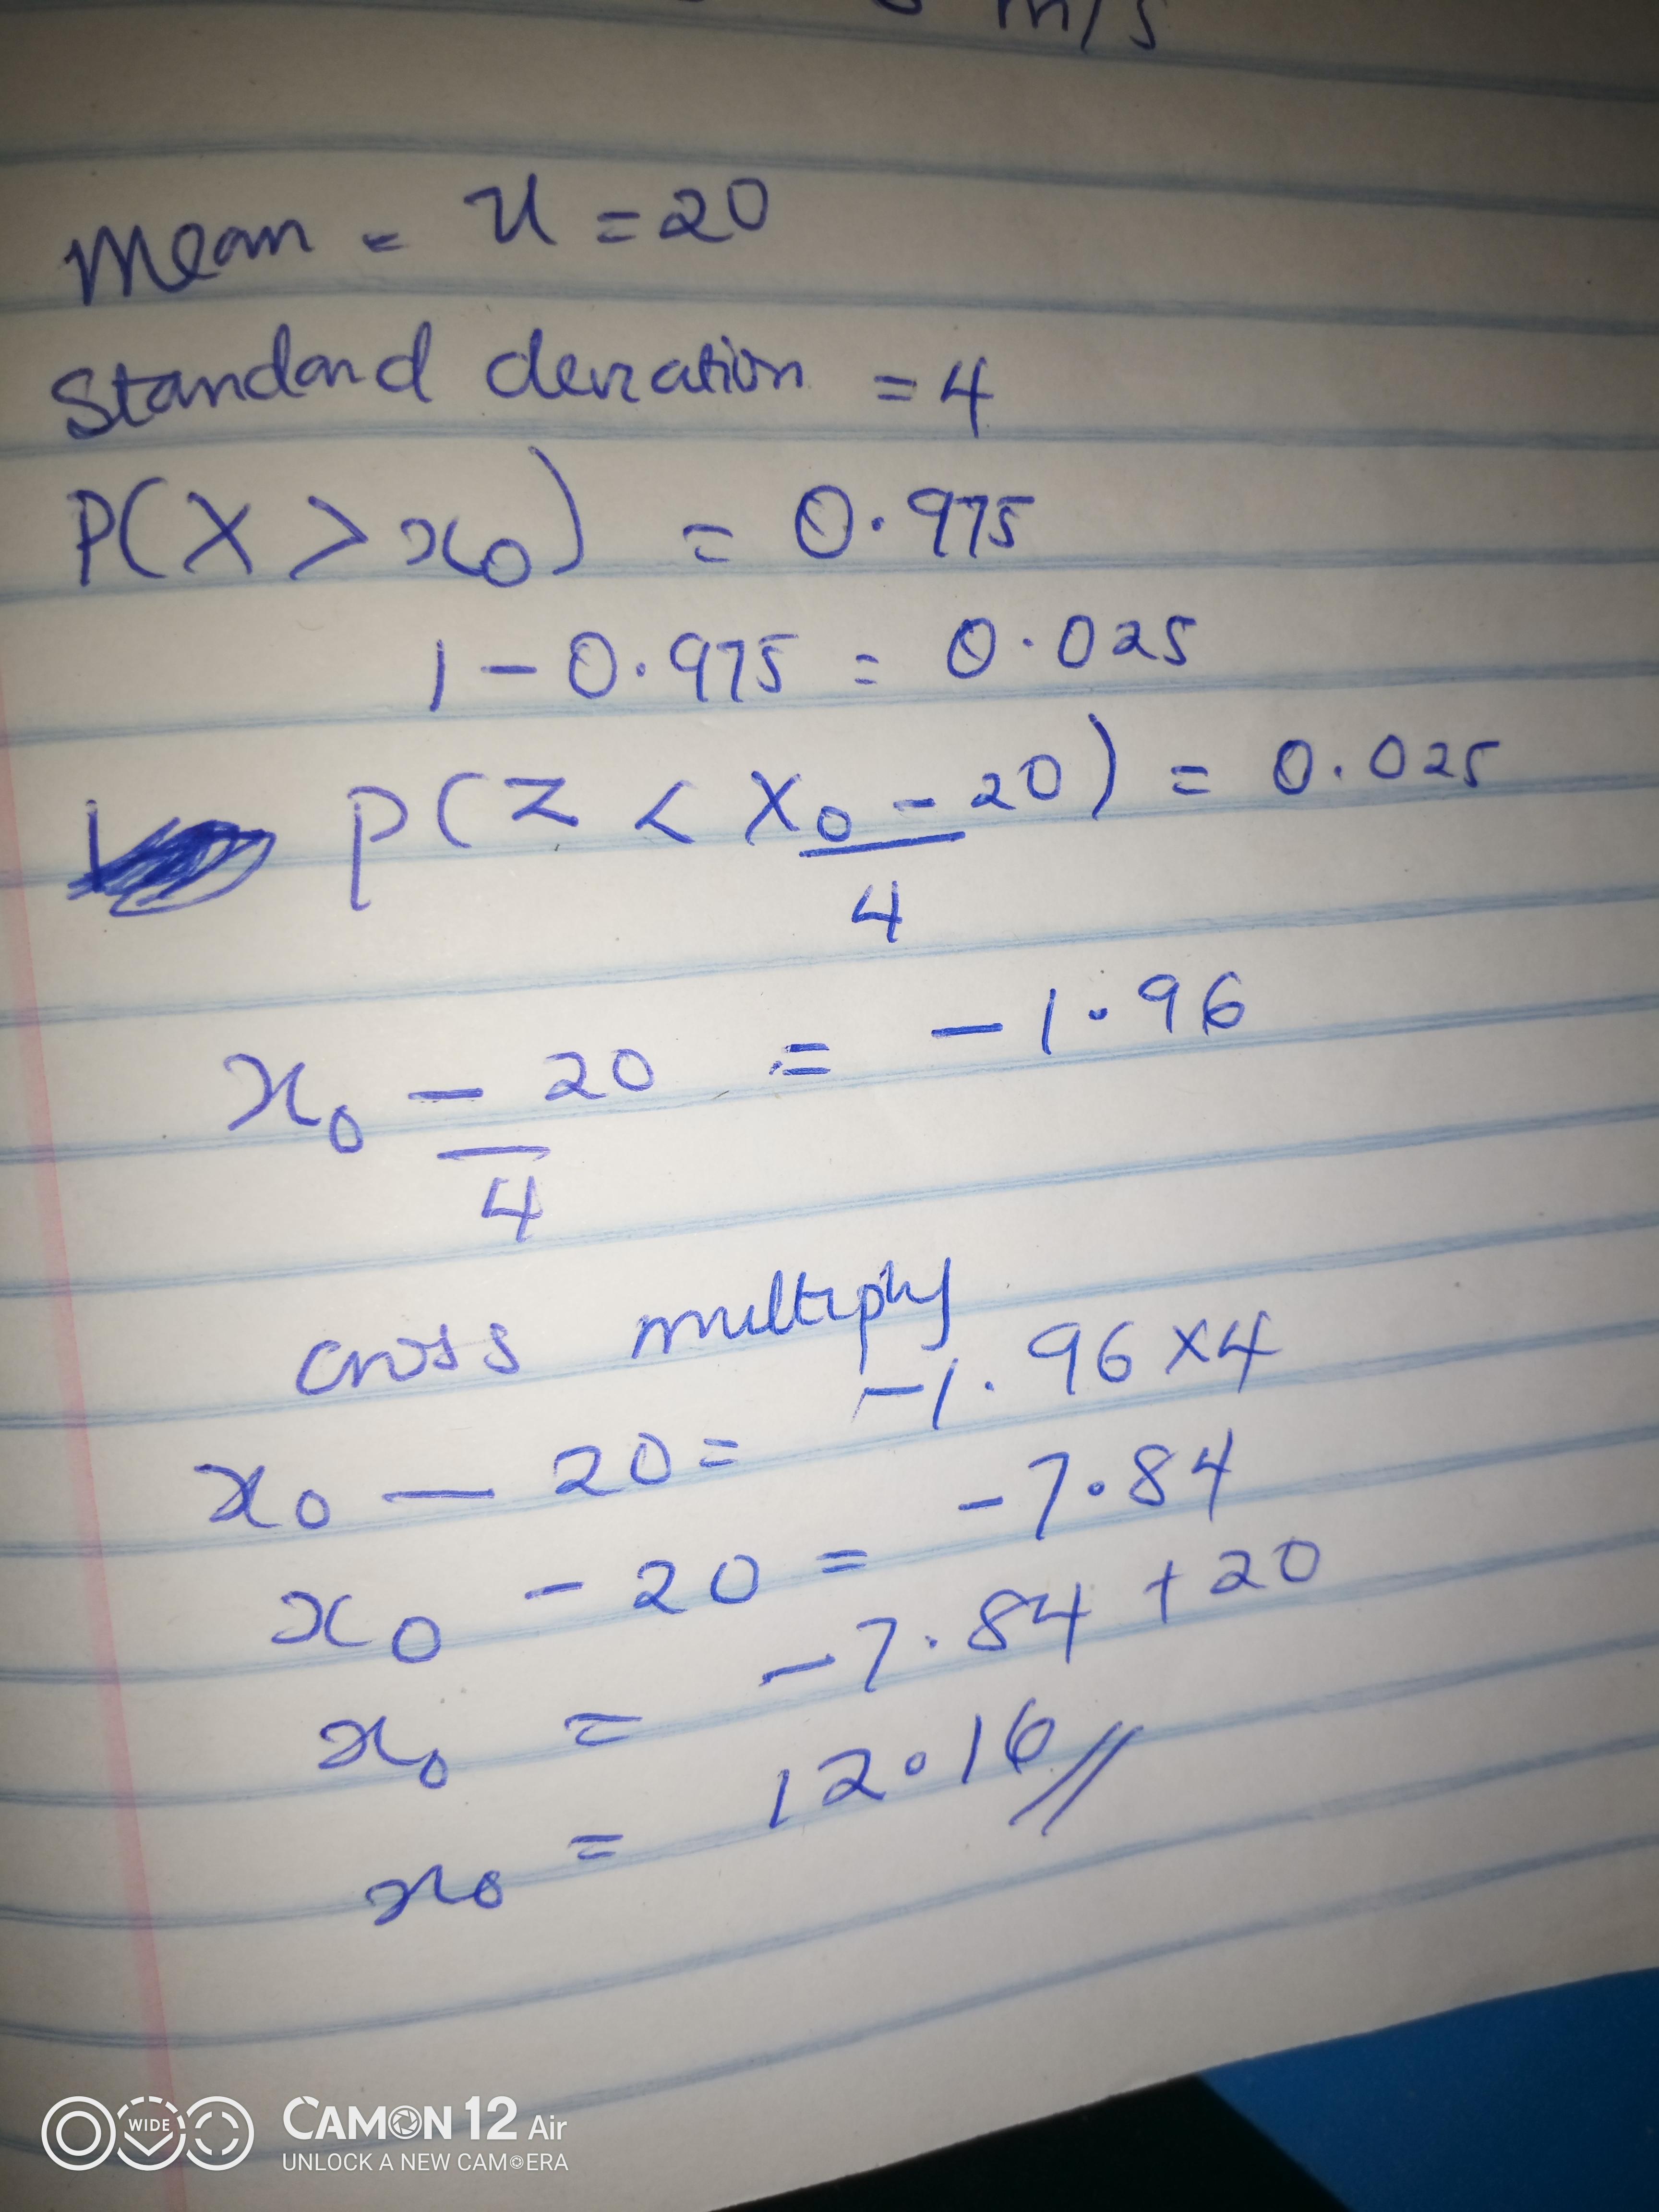 m/s
Mean = u = 20
Standard deviation = 4
P(X > x₀) = 0.975
1 - 0.975 = 0.025
P(Z < X₀ - 20) = 0.025
4
x₀ - 20 = -1.96
4
cross multiply
x₀ - 20 = -1.96 x 4
x₀ - 20 = -7.84
x₀ = -7.84 + 20
x₀ = 12.16//
WIDE
CAMON 12 Air
UNLOCK A NEW CAMERA